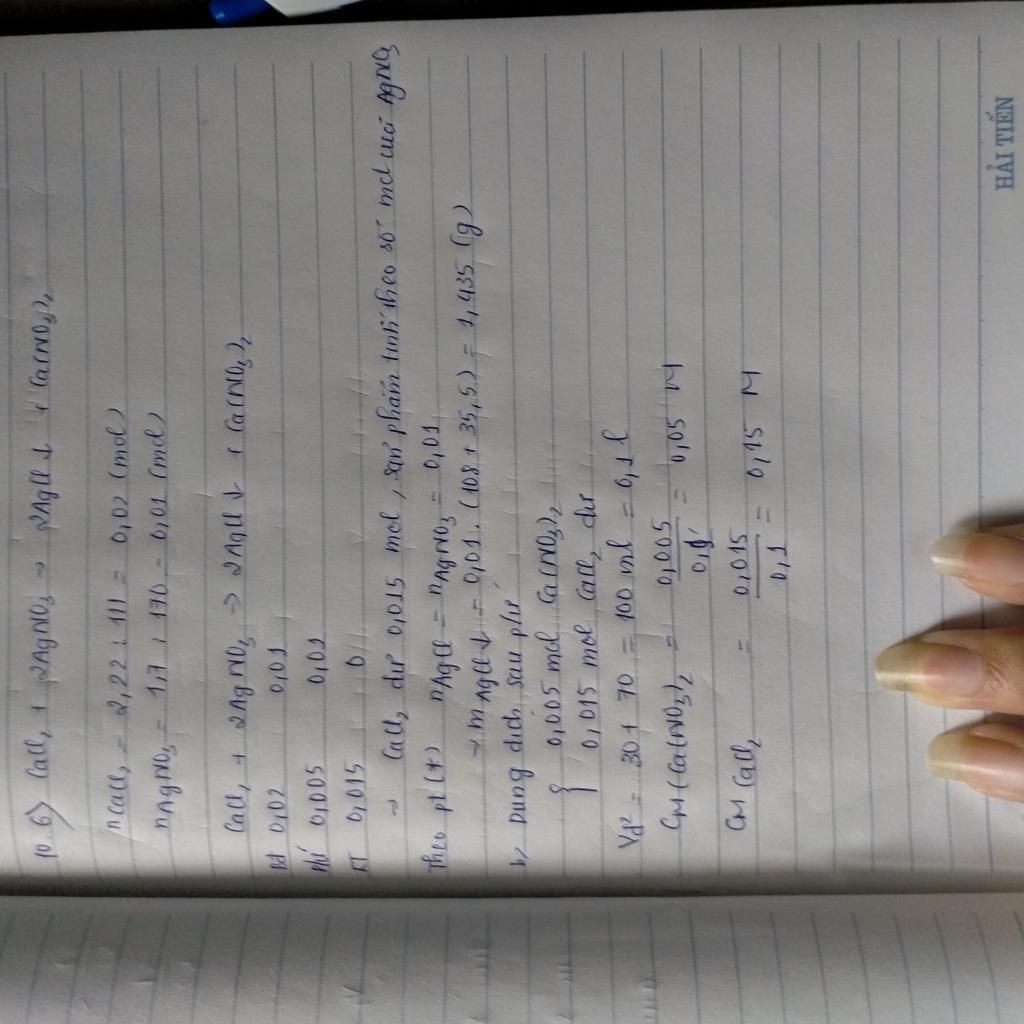 10.6) CaCl₂ + 2AgNO₃ → 2AgCl↓ + Ca(NO₃)₂
nCaCl₂ = 2,22 : 111 = 0,02 (mol)
nAgNO₃ = 1,7 : 170 = 0,01 (mol)
CaCl₂ + 2AgNO₃ → 2AgCl↓ + Ca(NO₃)₂
Bđ 0,02 0,01
Pứ 0,005 0,01
KT 0,015 0
→ CaCl₂ dư 0,015 mol, sản phẩm tính theo số mol của AgNO₃
Theo pt (*) nAgCl = nAgNO₃ = 0,01
→ mAgCl↓ = 0,01. (108 + 35,5) = 1,435 (g)
b, Dung dịch sau pứ
{ 0,005 mol Ca(NO₃)₂
0,015 mol CaCl₂ dư
Vd² = 30 + 70 = 100 ml = 0,1 l
CM (Ca(NO₃)₂ = 0,005/0,1 = 0,05 M
CM CaCl₂ = 0,015/0,1 = 0,15 M
HẢI TIẾN